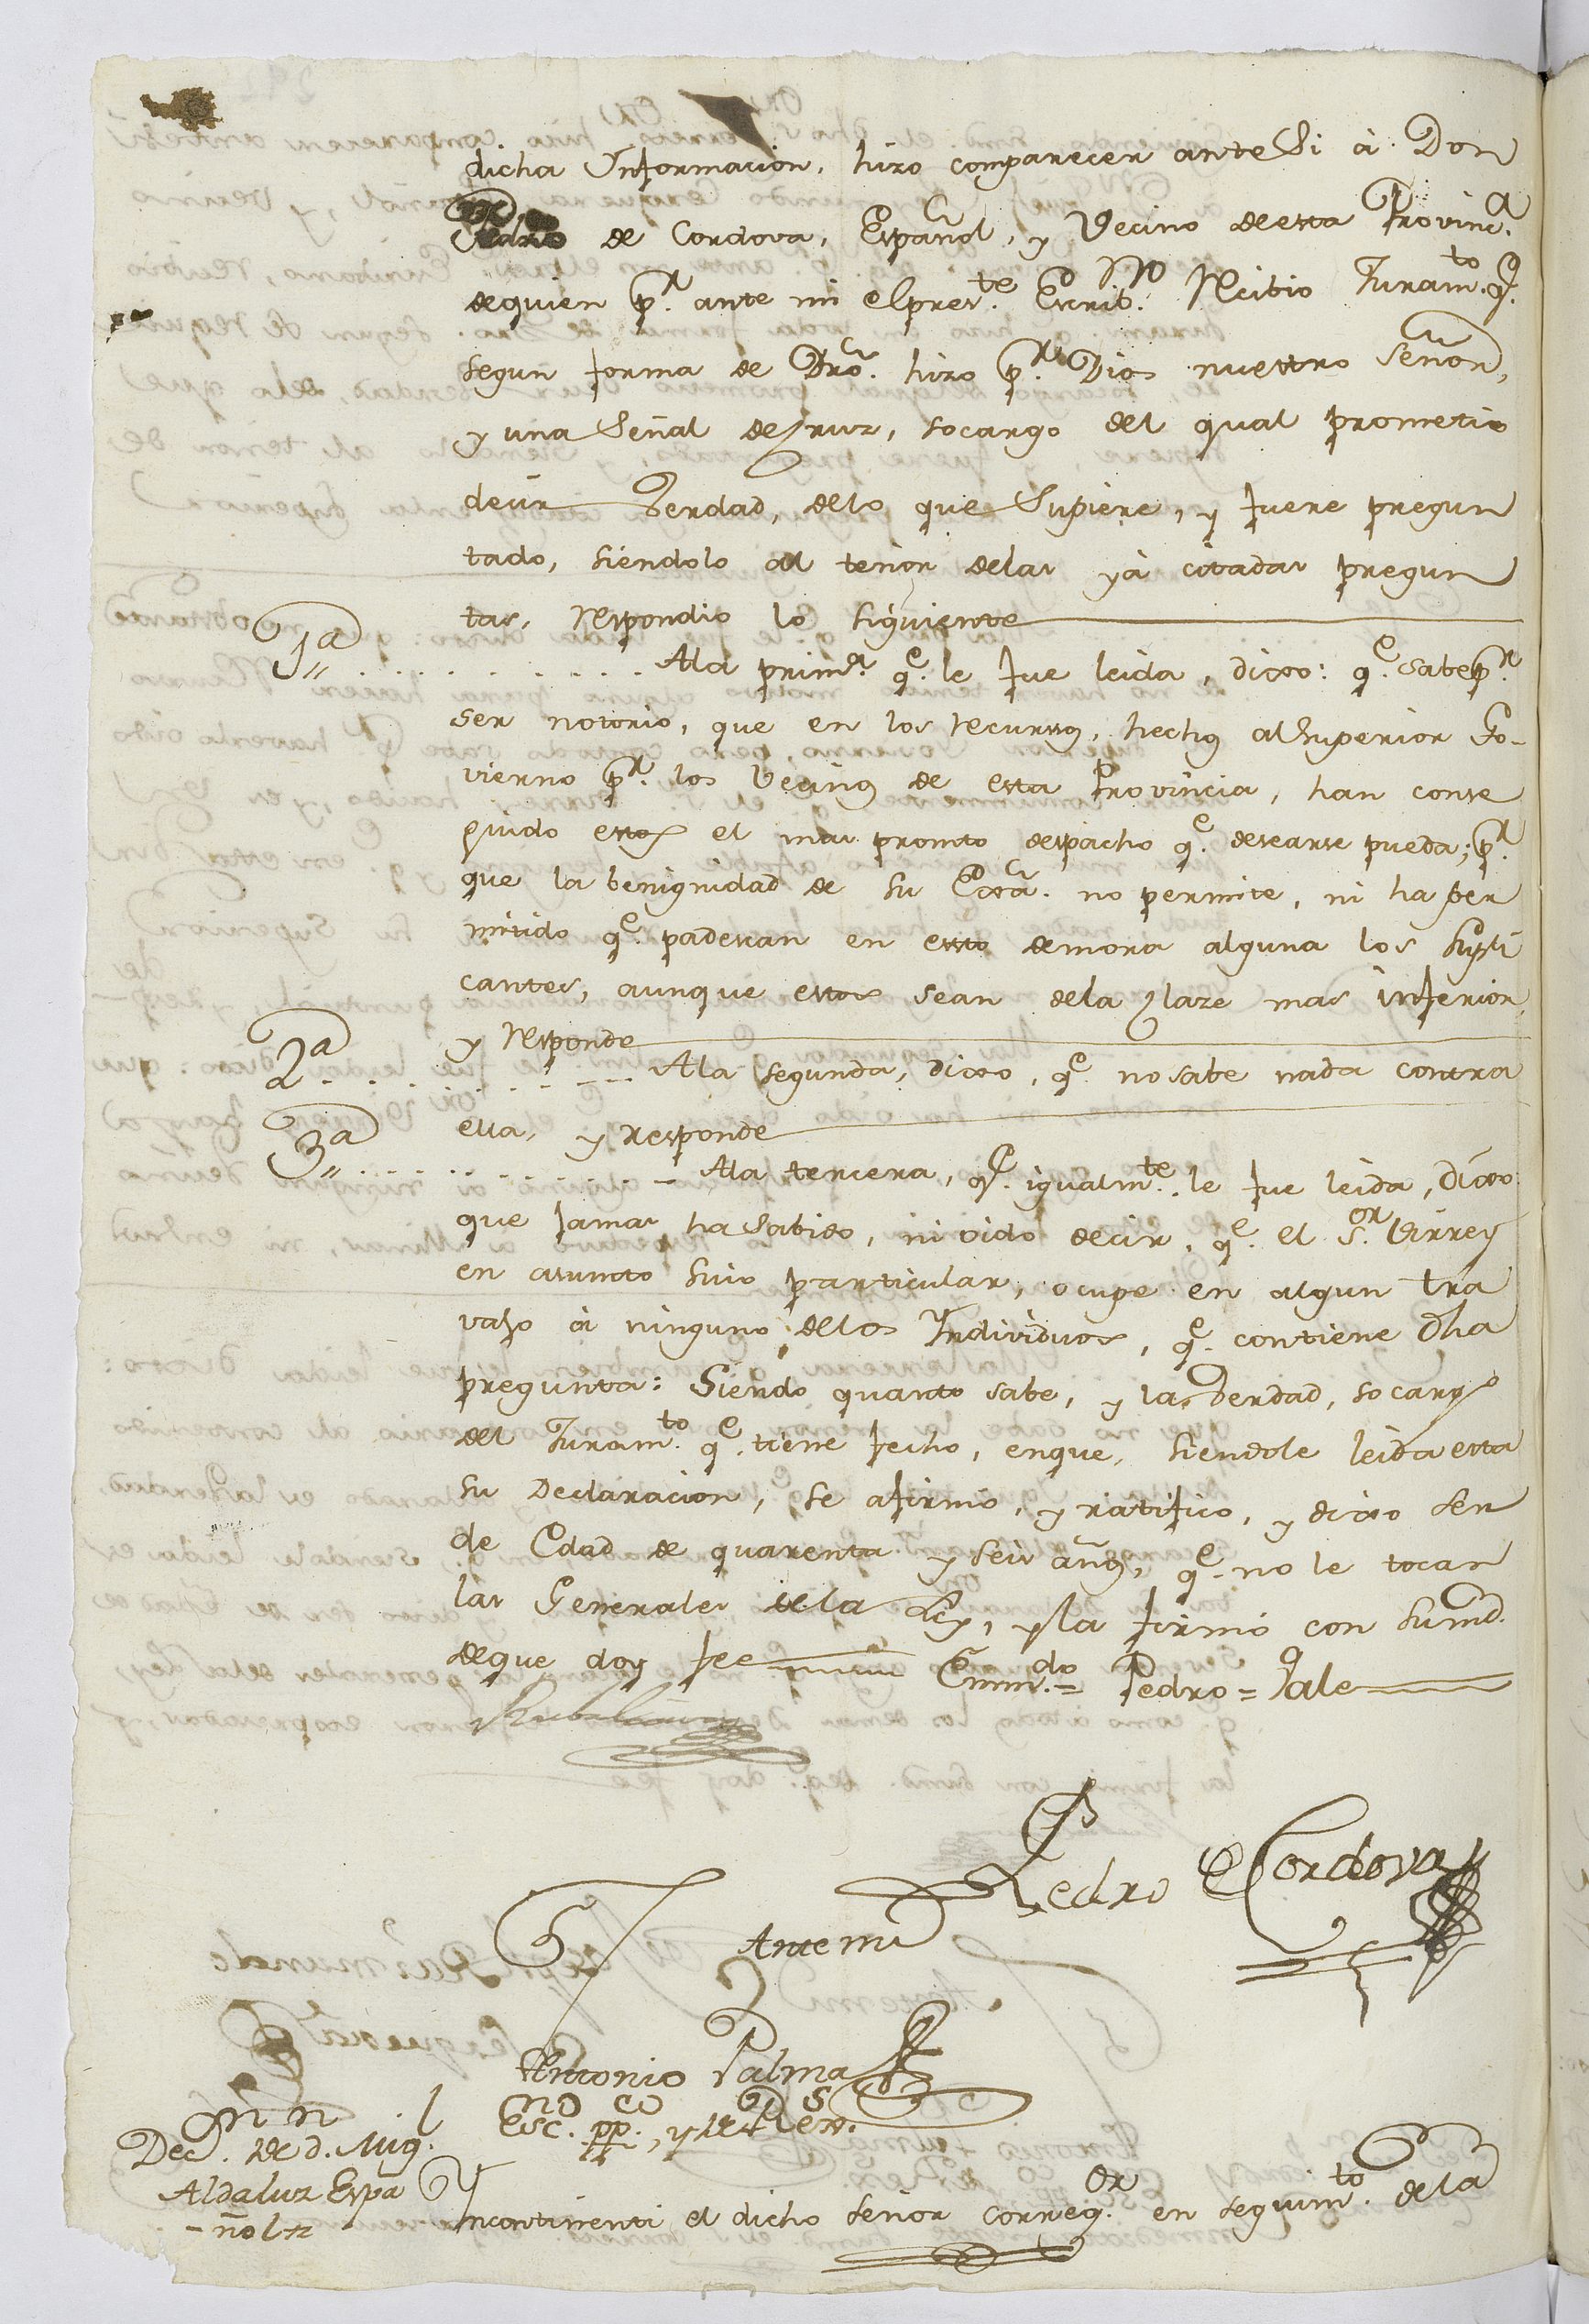 dicha Información, hizo comparecer antesi à Don
Pedro de Cordova, Español, y Vecino de esta Provinc.ª
dequien p.r ante mi el pres.te Escrib.no Recibio Juram.to q.e
segun forma de Dro. hizo p.r Dios nuestro Señor,
y una Señal de Cruz, socargo del qual prometio
decir Verdad, delo que Supiere, y fuere pregun
tado, siendolo al tenor delas yà citadas pregun
tas, Respondio lo siguiente
1.a Ala prim.a q.e le fue leida, dixo: q.e sabe p.r
ser notorio, que en los recursos, hechos al Superior Go-
vierno p.r los Vecinos de esta Provincia, han conse
guido estos el mas promto despacho q.e desearse pueda; p.r
que la benignidad de su Exa. no permite, ni ha per
mitido q.e padescan en esto demora alguna los supli
cantes, aunque estos sean dela Claze mas inferior,
y Responde
2.a Ala segunda, dixo, q.e no sabe nada contra
esta, y Responde
3.a Ala tercera, q.e igualm.te le fue leida, Dixo
que jamas ha Sabido, ni oido decir, q.e el S.or Virrey
en asumto suio particular, ocupe en algun tra
vajo à ninguno delos Individuos, q.e contiene dha
pregunta: Siendo quanto sabe, y la Verdad, so cargo
del Juram.to q.e tiene fecho, enque, siendole leida esta
su Declaracion, se afirmó, y ratificó, y dixo ser
de Edad de quarenta y seis años, q.e no le tocan
las Generales dela Ley, y la firmó con sumd.
deque doy fee Enm.do = Pedro = Vale
Pedro de Cordova
Antemi
Antonio Palma
Esc.no pp.co, y de R.s
Dec.n de d.n Mig.l
Aldaluz Espa
-ñol =
Yncontinenti el dicho señor Correg.or en seguim.to dela